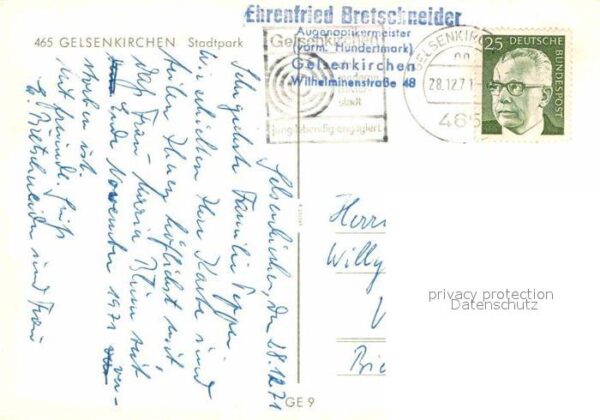 465 GELSENKIRCHEN Stadtpark
Ehrenfried Bretschneider
Augenoptikermeister
(vorm. Hundertmark)
Gelsenkirchen
Wilhelminenstraße 48
Gelsenkirchen
stadt
jung lebendig engagiert
GELSENKIRCHEN
28.12.71
465
25 DEUTSCHE
BUNDESPOST
Gelsenkirchen, den 28.12.71
Sehr geehrte Familie Peppen
wir erhielten Ihre Karte und
teilen Ihnen höflichst mit
daß Frau Maria Blum seit
Ende November 1971 ver-
storben ist.
Mit freundl. Gruß
E. Bretschneider und Frau
Herrn
Willy
privacy protection
Datenschutz
GE 9